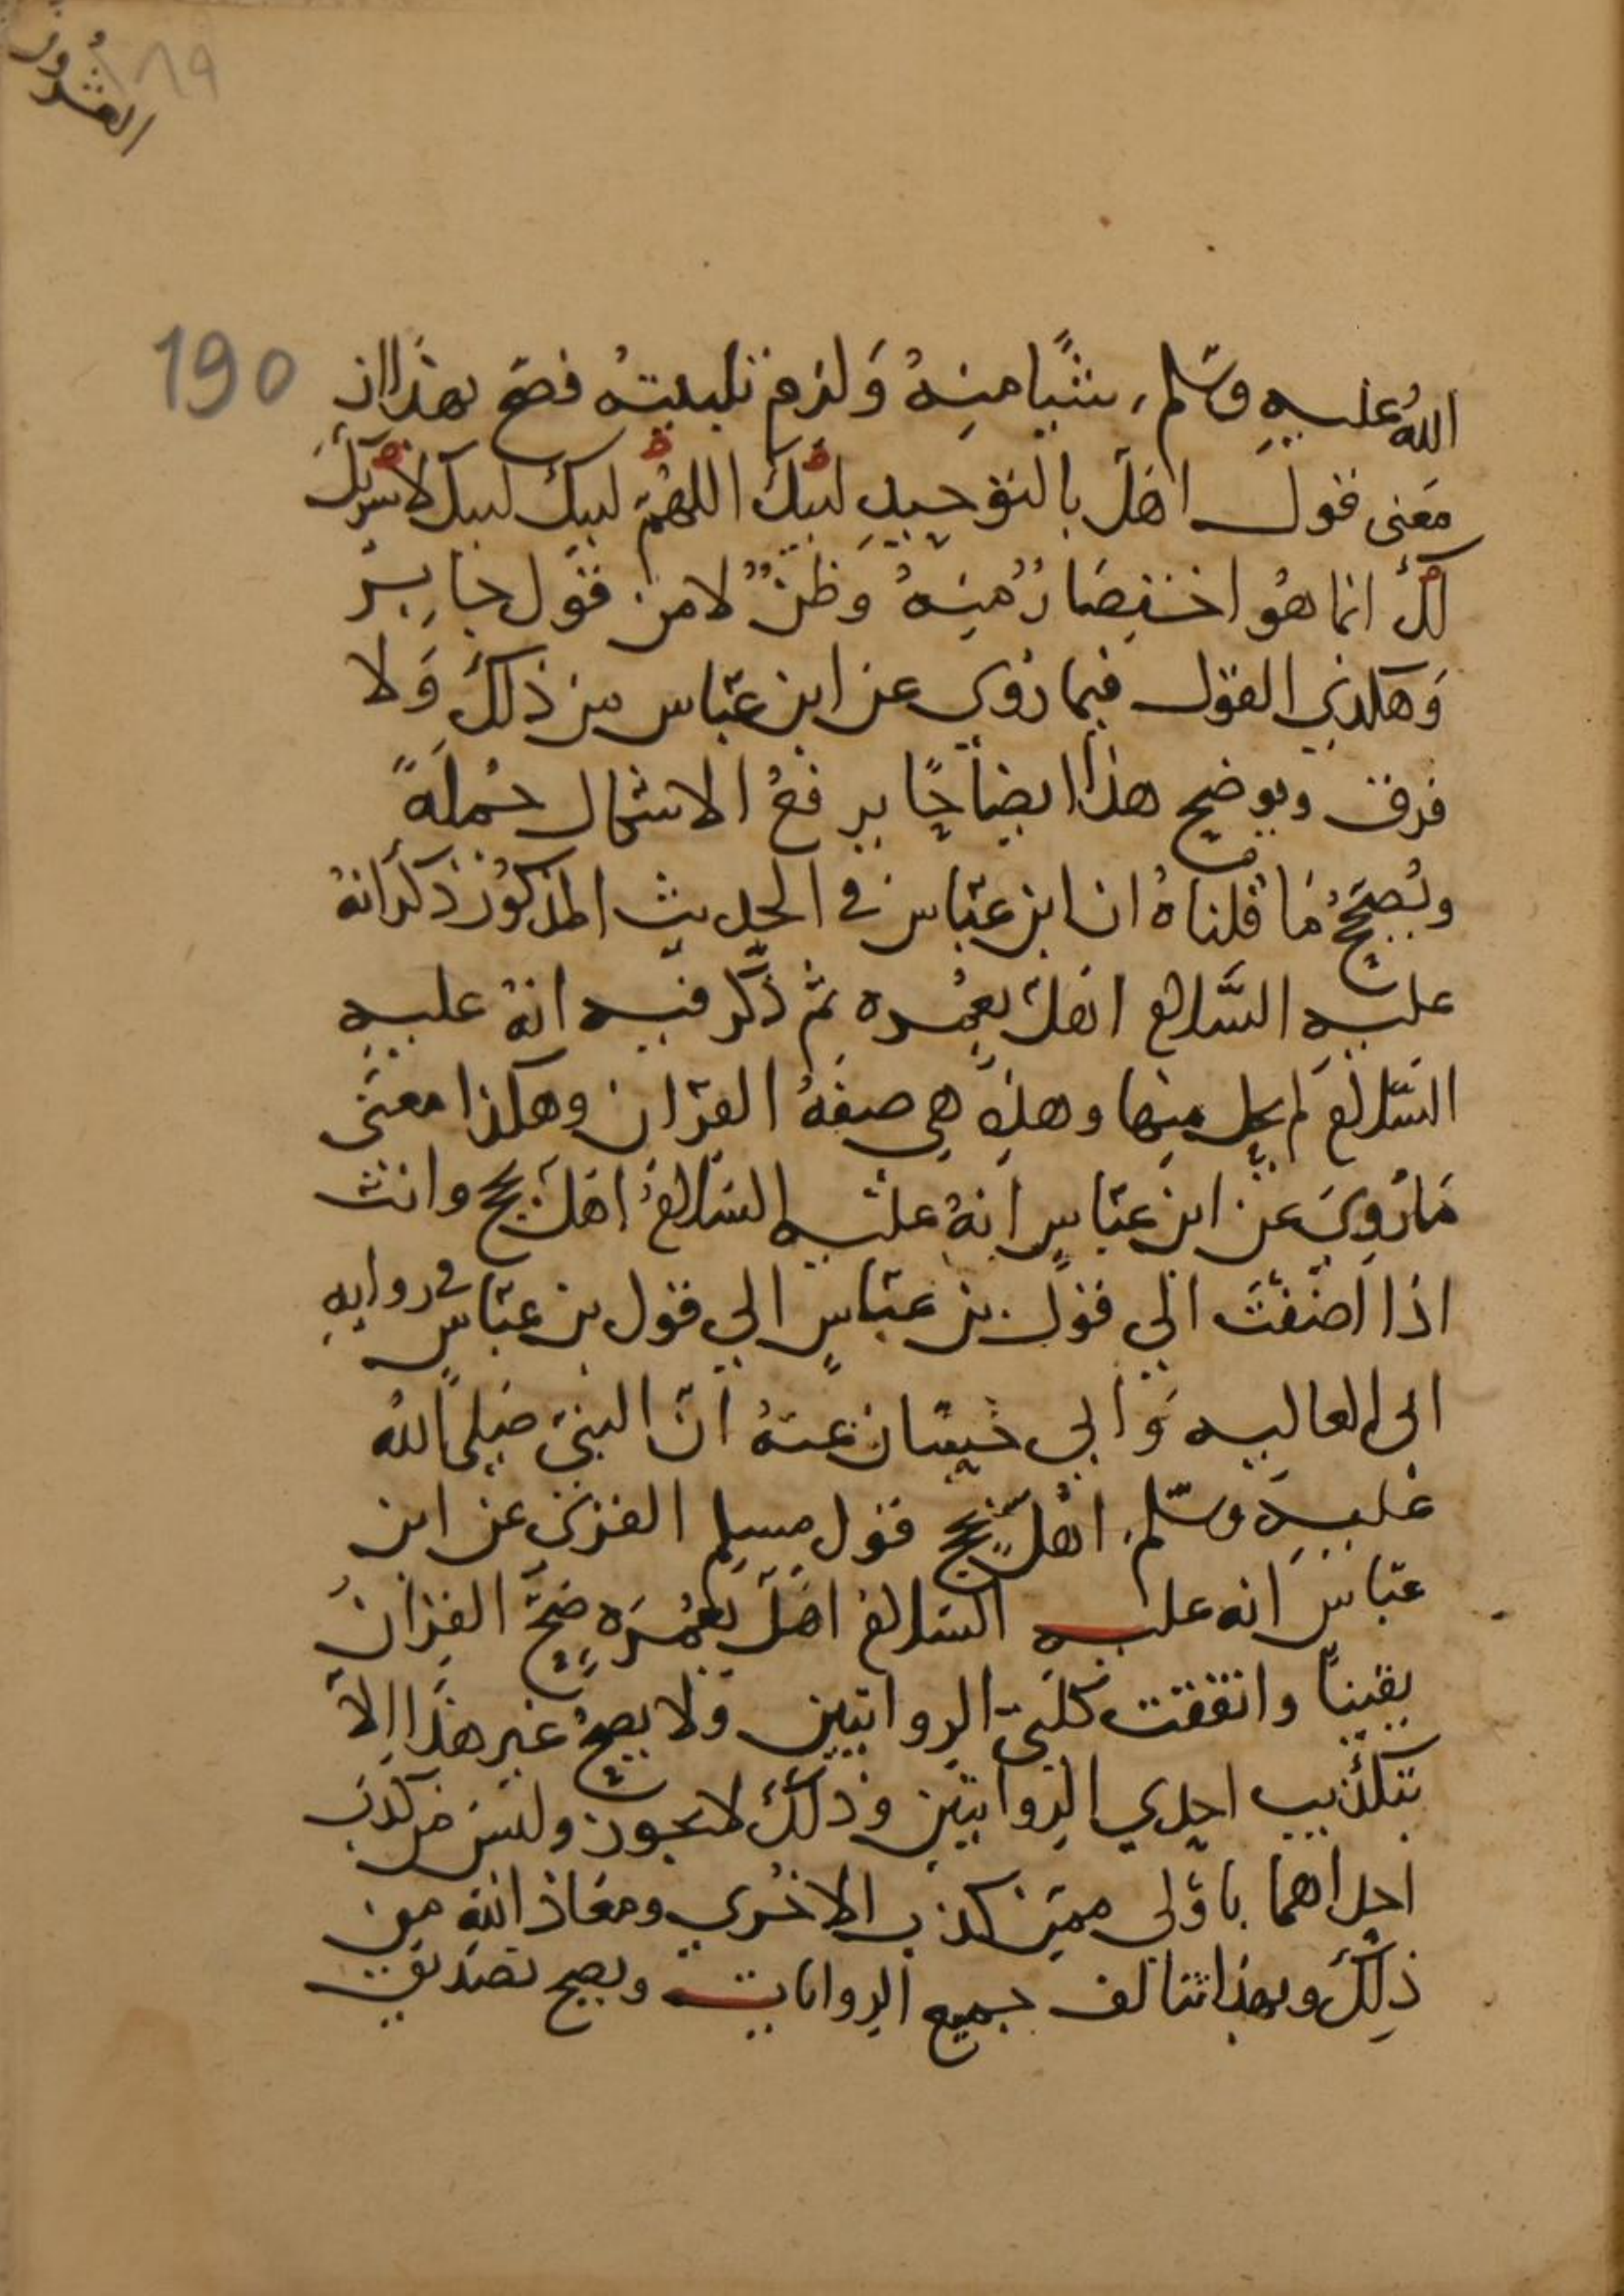 العشرون
١٨٩
190
الله عليه وسلم شيا منه ولزم تلبيته فصح بهذا ان
معنى قول اهل بالتوحيد لبيك اللهم لبيك لبيك لا شريك
لك انما هو اختصار منه وظن لا من قول جابر
وهكذي القول فيما روي عن ابن عباس من ذلك ولا
فرق ويوضح هذا ايضاحا يرفع الاشكال جملة
ويصحح ما قلناه ان ابن عباس في الحديث المذكور ذكر انه
عليه السلام اهل بعمره ثم ذكر فيه انه عليه
السلام لم يحل منها وهذه هي صفة القران وهكذا معنى
ما روي عن ابن عباس انه عليه السلام اهل بحج وانت
اذا اضفت الى قول بن عباس الي قول بن عباس في روايه
ابي العاليه وابي حسان عنه ان النبي صلى الله
عليه وسلم اهل بحج قول مسلم القري عن ابن
عباس انه عليه السلام اهل بعمره صح القران
يقينا واتفقت كلتى الروايتين ولا يصح غير هذا الا
بتكذيب احدي الروايتين وذلك لا يجوز وليس من كذب
احداهما باولى ممن كذب الاخري ومعاذ الله من
ذلك وبهذا تتالف جميع الروايات ويصح تصديق